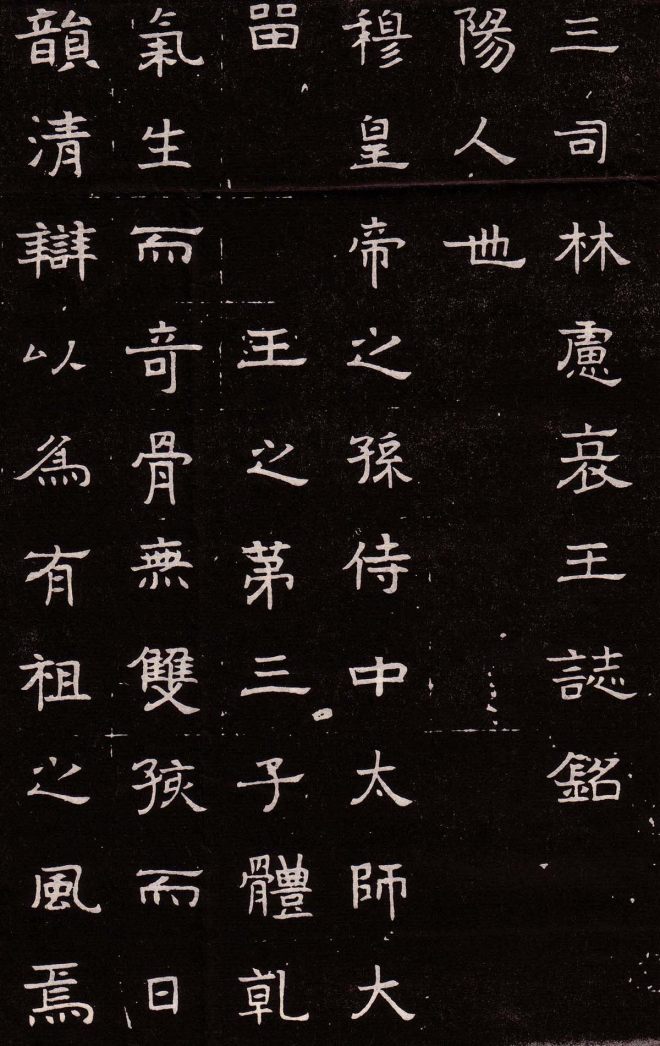 三司林慮哀王誌銘
陽人也
穆皇帝之孫侍中太師大
㽞王之苐三子體乹
氣生而奇骨無雙孩而日
韻清辯以為有祖之風焉